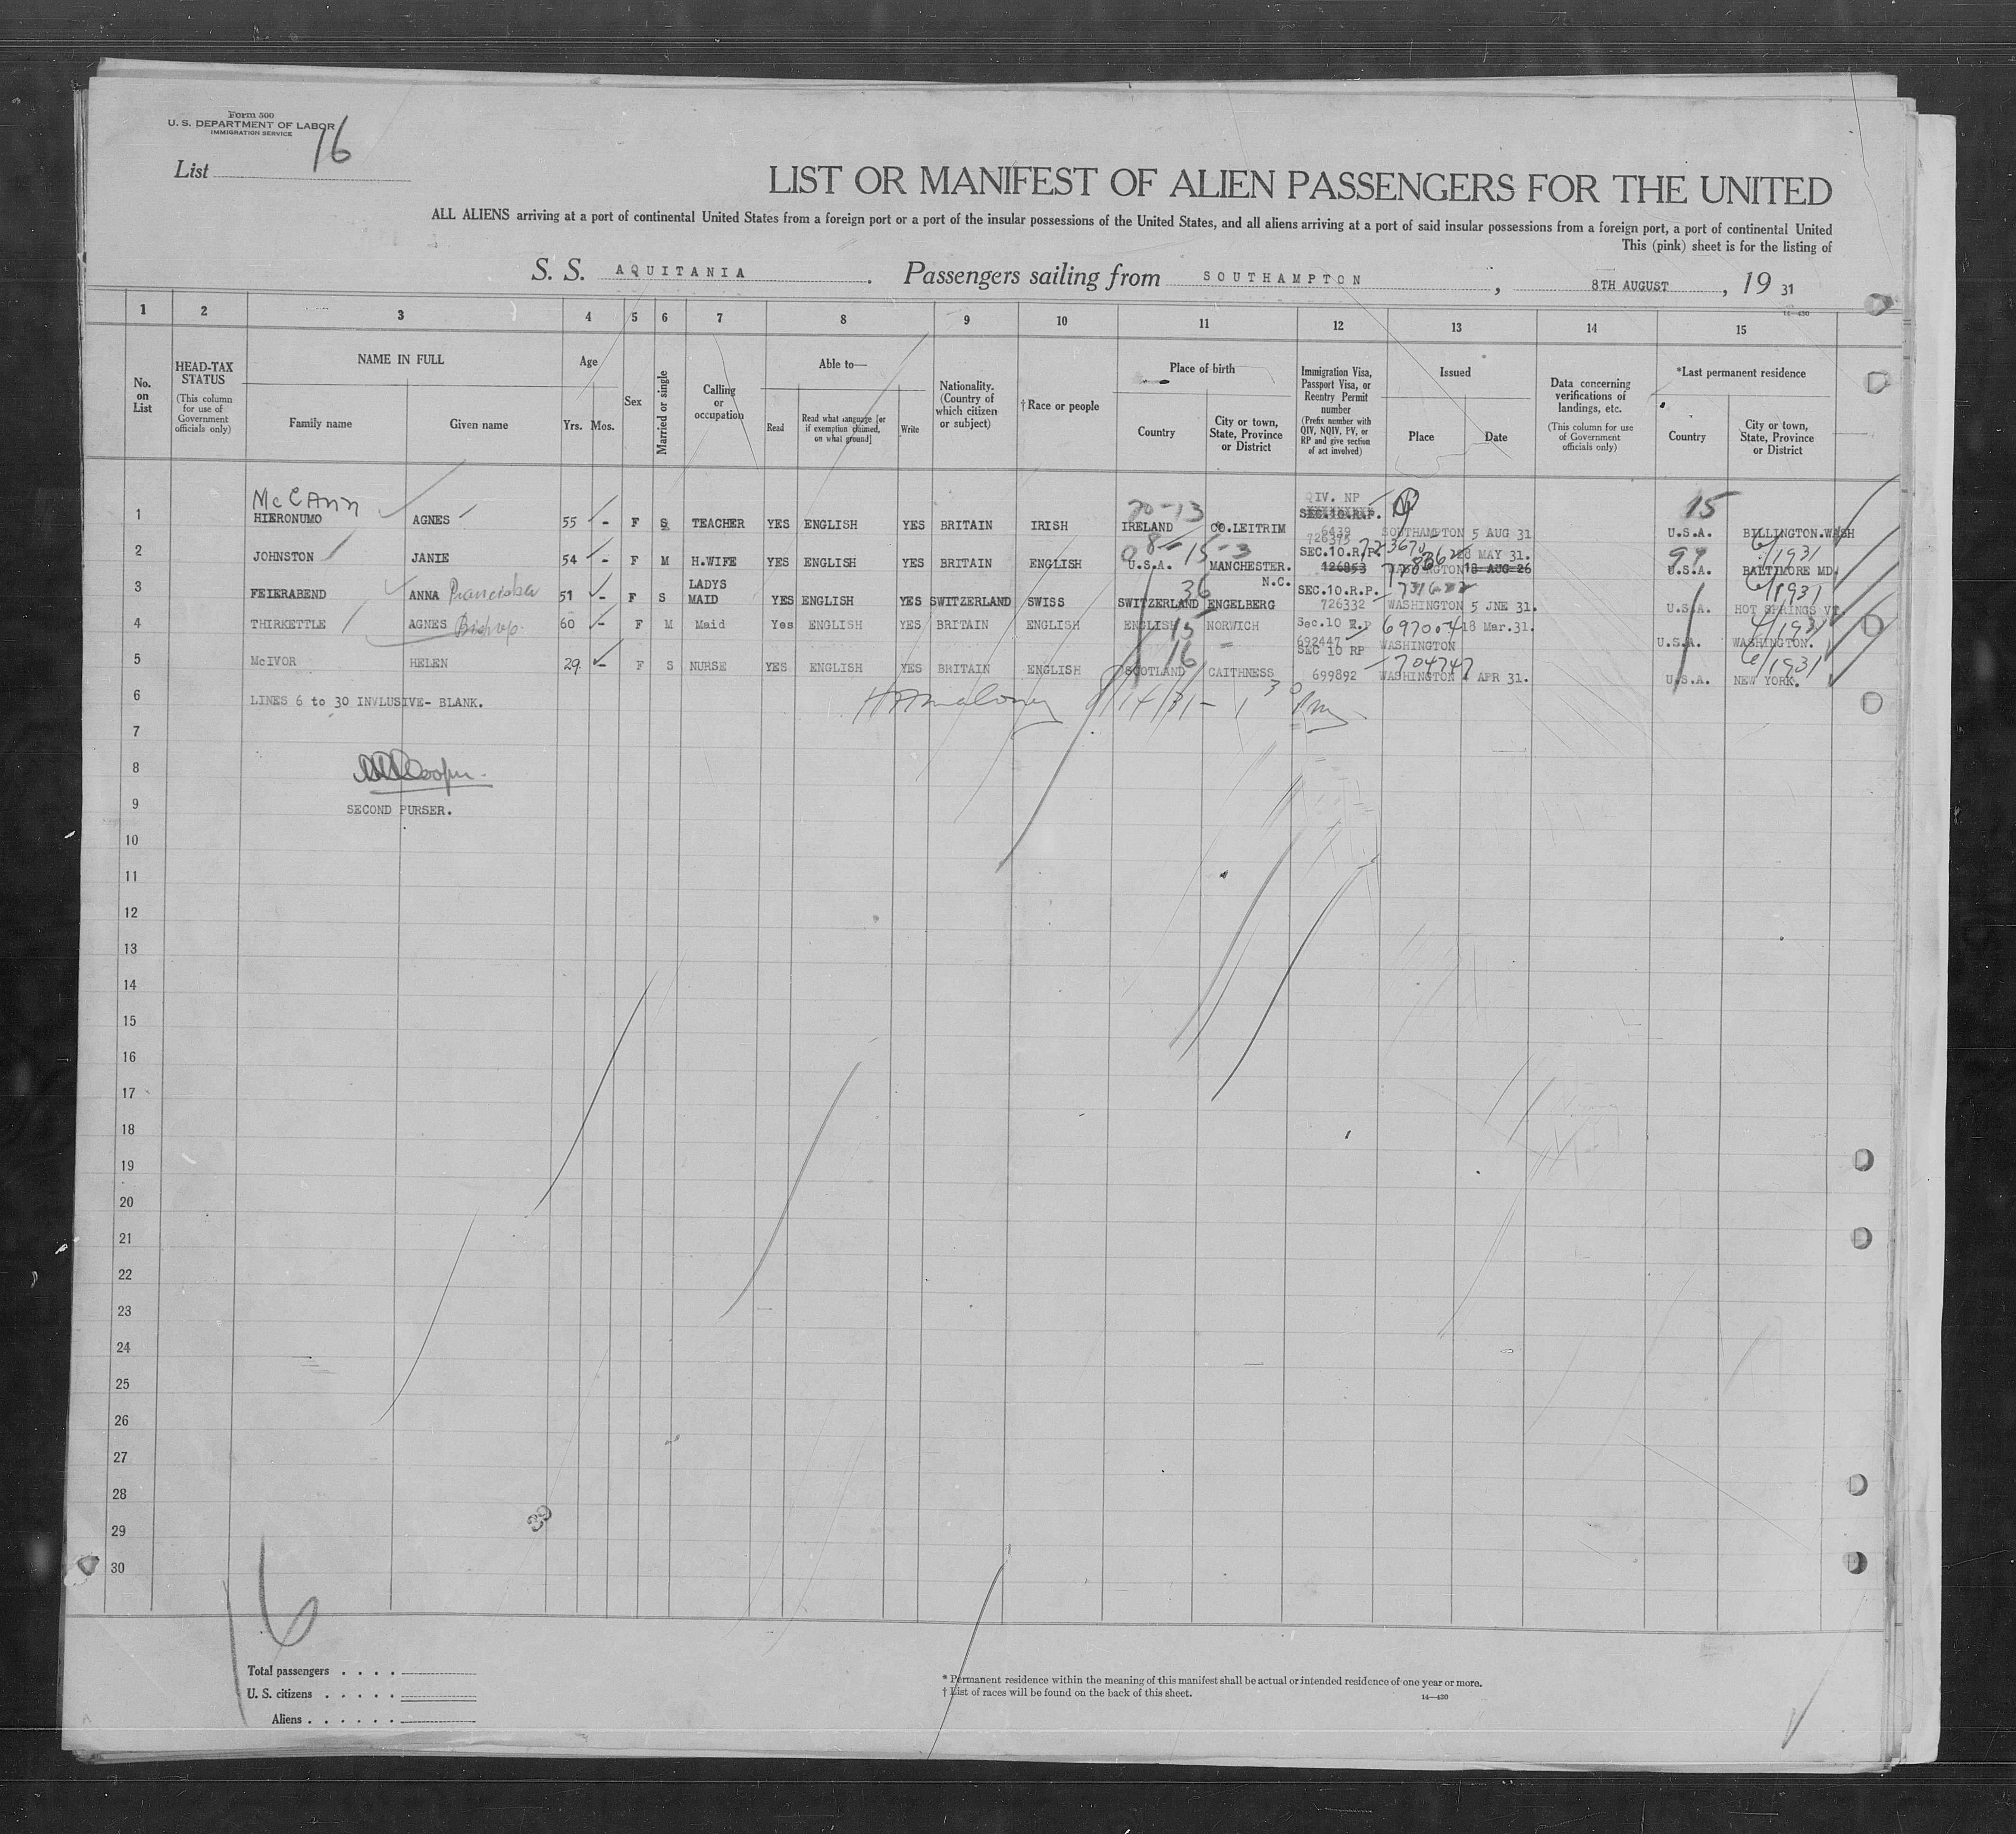 Form 500
U. S. DEPARTMENT OF LABOR
IMMIGRATION SERVICE
16
List
LIST OR MANIFEST OF ALIEN PASSENGERS FOR THE UNITED
ALL ALIENS arriving at a port of continental United States from a foreign port or a port of the insular possessions of the United States, and all aliens arriving at a port of said insular possessions from a foreign port, a port of continental United
This (pink) sheet is for the listing of
S. S. AQUITANIA. Passengers sailing from SOUTHAMPTON, 8TH AUGUST, 19 31
14—430
1 2 3 4 5 6 7 8 9 10 11 12 13 14 15
No. on List
HEAD-TAX STATUS (This column for use of Government officials only)
NAME IN FULL
Family name Given name
Age
Yrs. Mos.
Sex
Married or single
Calling or occupation
Able to—
Read Read what language [or if exemption claimed, on what ground] Write
Nationality. (Country of which citizen or subject)
†Race or people
Place of birth
Country City or town, State, Province or District
Immigration Visa, Passport Visa, or Reentry Permit number (Prefix number with QIV, NQIV, PV, or RP and give section of act involved)
Issued
Place Date
Data concerning verifications of landings, etc. (This column for use of Government officials only)
*Last permanent residence
Country City or town, State, Province or District
McCann 20-13 QIV. NP 15
1 HIERONUMO AGNES 55 - F S TEACHER YES ENGLISH YES BRITAIN IRISH IRELAND CO.LEITRIM SEC.10.R.P. 6439 SOUTHAMPTON 5 AUG 31 U.S.A. BILLINGTON.WASH
726375 723670 6/1931
2 JOHNSTON JANIE 54 - F M H.WIFE YES ENGLISH YES BRITAIN ENGLISH U.S.A. MANCHESTER. N.C. SEC.10.R.P. 126853 WASHINGTON 28 MAY 31. 18 AUG 26 U.S.A. BALTIMORE MD.
36 731682 6/1931
3 FEIERABEND ANNA Franciska 51 - F S LADYS MAID YES ENGLISH YES SWITZERLAND SWISS SWITZERLAND ENGELBERG SEC.10.R.P. 726332 WASHINGTON 5 JNE 31. U.S.A. HOT SPRINGS VT.
15 697004 4/1931
4 THIRKETTLE AGNES Bishop 60 - F M Maid Yes ENGLISH YES BRITAIN ENGLISH ENGLISH NORWICH Sec.10 R.P 692447 WASHINGTON 18 Mar.31. U.S.A. WASHINGTON.
16 704747 6/1931
5 McIVOR HELEN 29 - F S NURSE YES ENGLISH YES BRITAIN ENGLISH SCOTLAND CAITHNESS SEC 10 RP 699892 WASHINGTON APR 31. U.S.A. NEW YORK.
6 LINES 6 to 30 INVLUSIVE- BLANK.
7
8 Cooper.
9 SECOND PURSER.
10
11
12
13
14
15
16
17
18
19
20
21
22
23
24
25
26
27
28
29
30
16
Total passengers
U. S. citizens
Aliens
* Permanent residence within the meaning of this manifest shall be actual or intended residence of one year or more.
† List of races will be found on the back of this sheet.
14—430